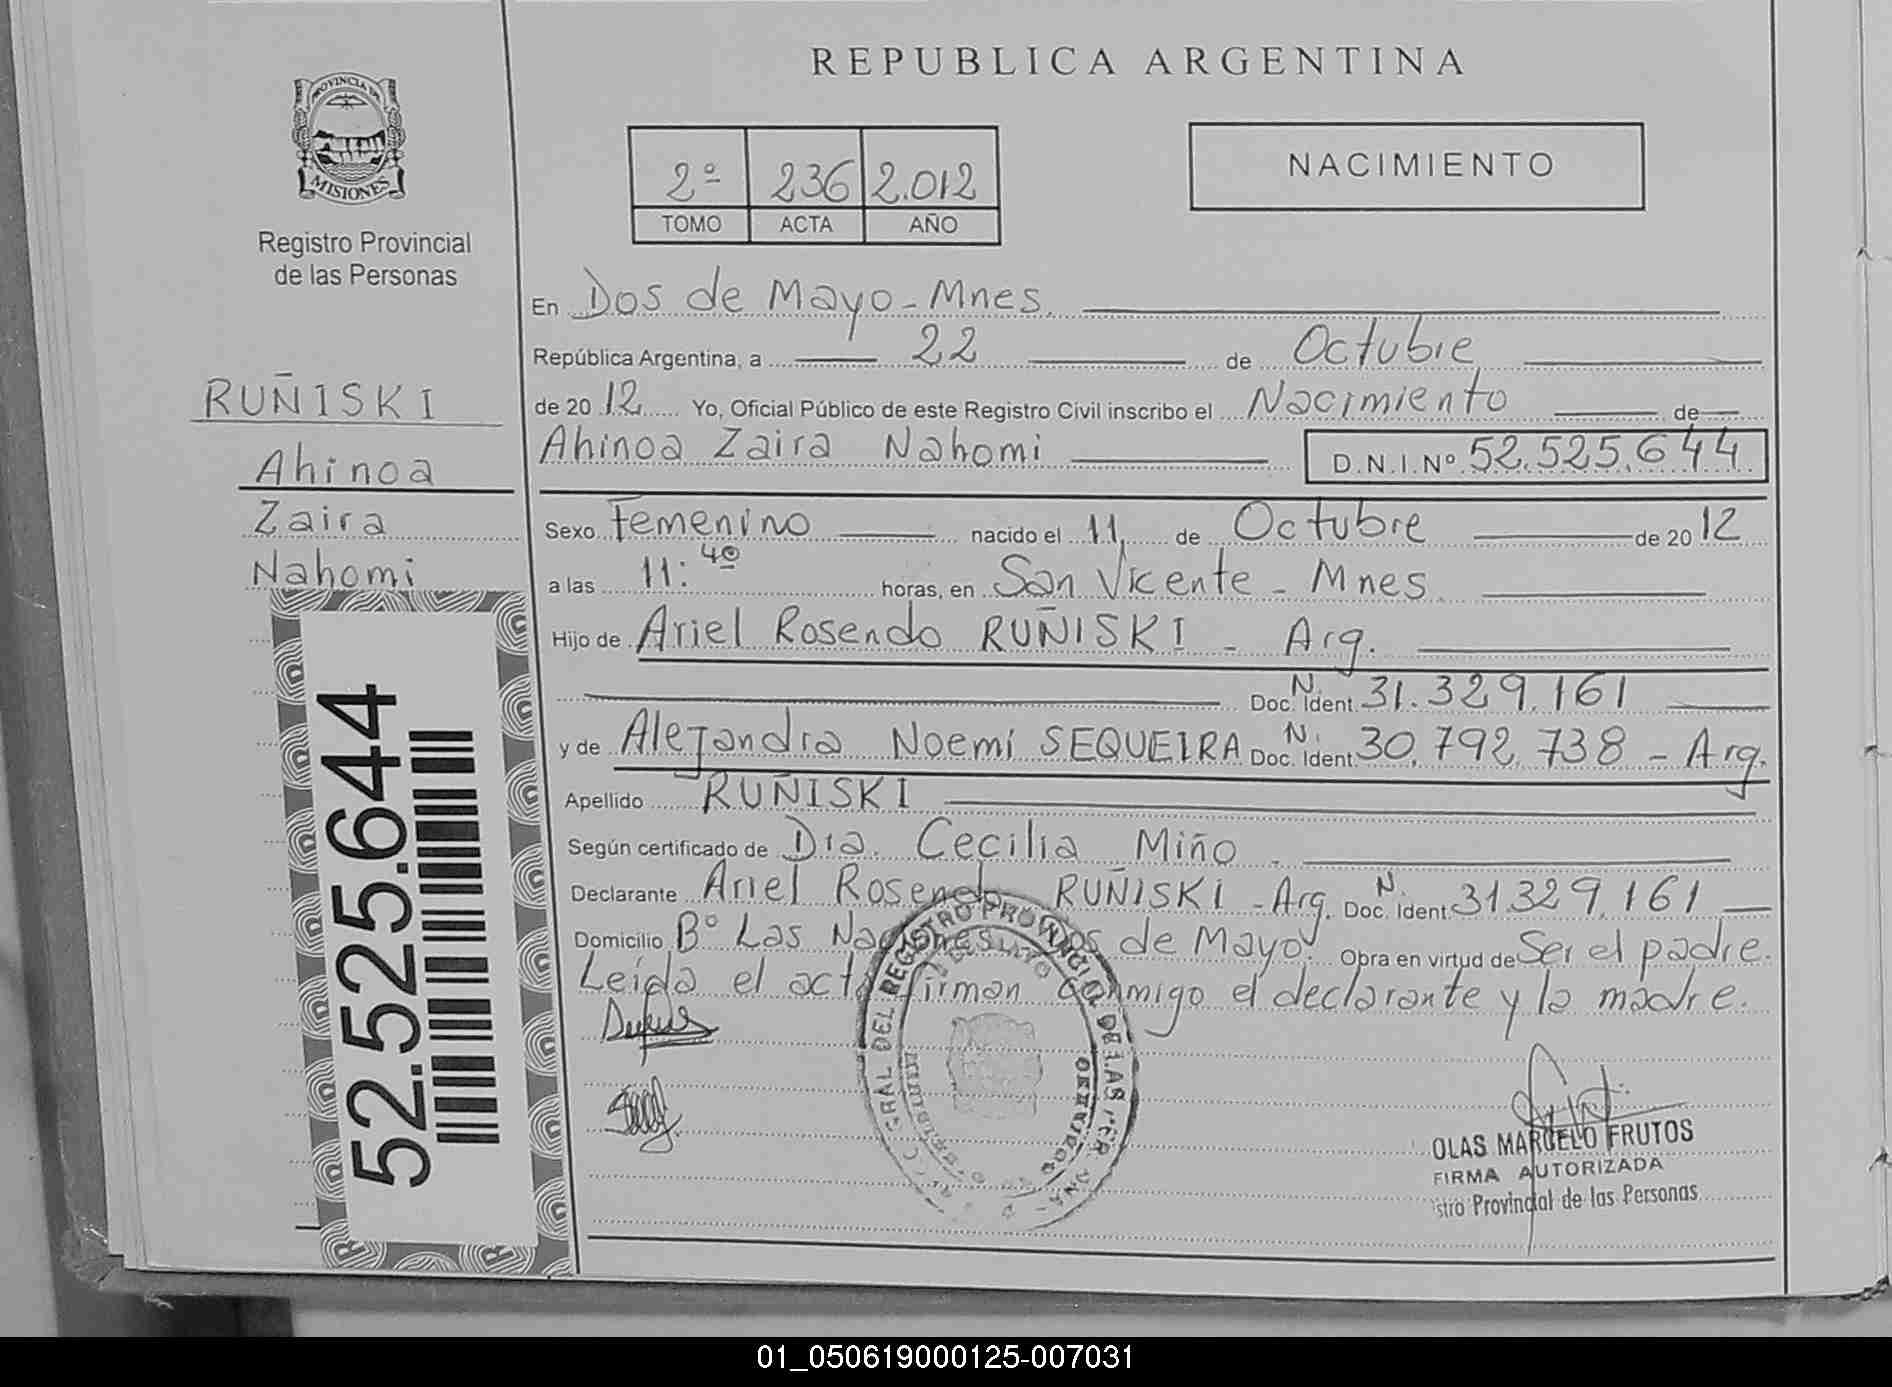 REPUBLICA ARGENTINA
PROVINCIA DE
MISIONES
Registro Provincial
de las Personas
2º 236 2.012
TOMO ACTA AÑO
NACIMIENTO
RUÑISKI
Ahinoa
Zaira
Nahomi
52.525.644
En Dos de Mayo - Mnes.
República Argentina, a 22 de Octubre
de 2012 Yo, Oficial Público de este Registro Civil inscribo el Nacimiento de
Ahinoa Zaira Nahomi D.N.I.Nº 52.525.644
Sexo Femenino nacido el 11 de Octubre de 2012
a las 11:40 horas, en San Vicente - Mnes
Hijo de Ariel Rosendo RUÑISKI - Arg.
Doc. N. Ident. 31.329.161
y de Alejandra Noemí SEQUEIRA Doc. N. Ident. 30.792.738 - Arg.
Apellido RUÑISKI
Según certificado de Dra. Cecilia Miño.
Declarante Ariel Rosendo RUÑISKI - Arg. Doc. N. Ident. 31.329.161
Domicilio Bº Las Naciones Dos de Mayo. Obra en virtud de Ser el padre.
Leída el acta firman conmigo el declarante y la madre.
GRAL DEL REGISTRO PROVINCIAL DE LAS
OLAS MARCELO FRUTOS
FIRMA AUTORIZADA
stro Provincial de las Personas
01_050619000125-007031